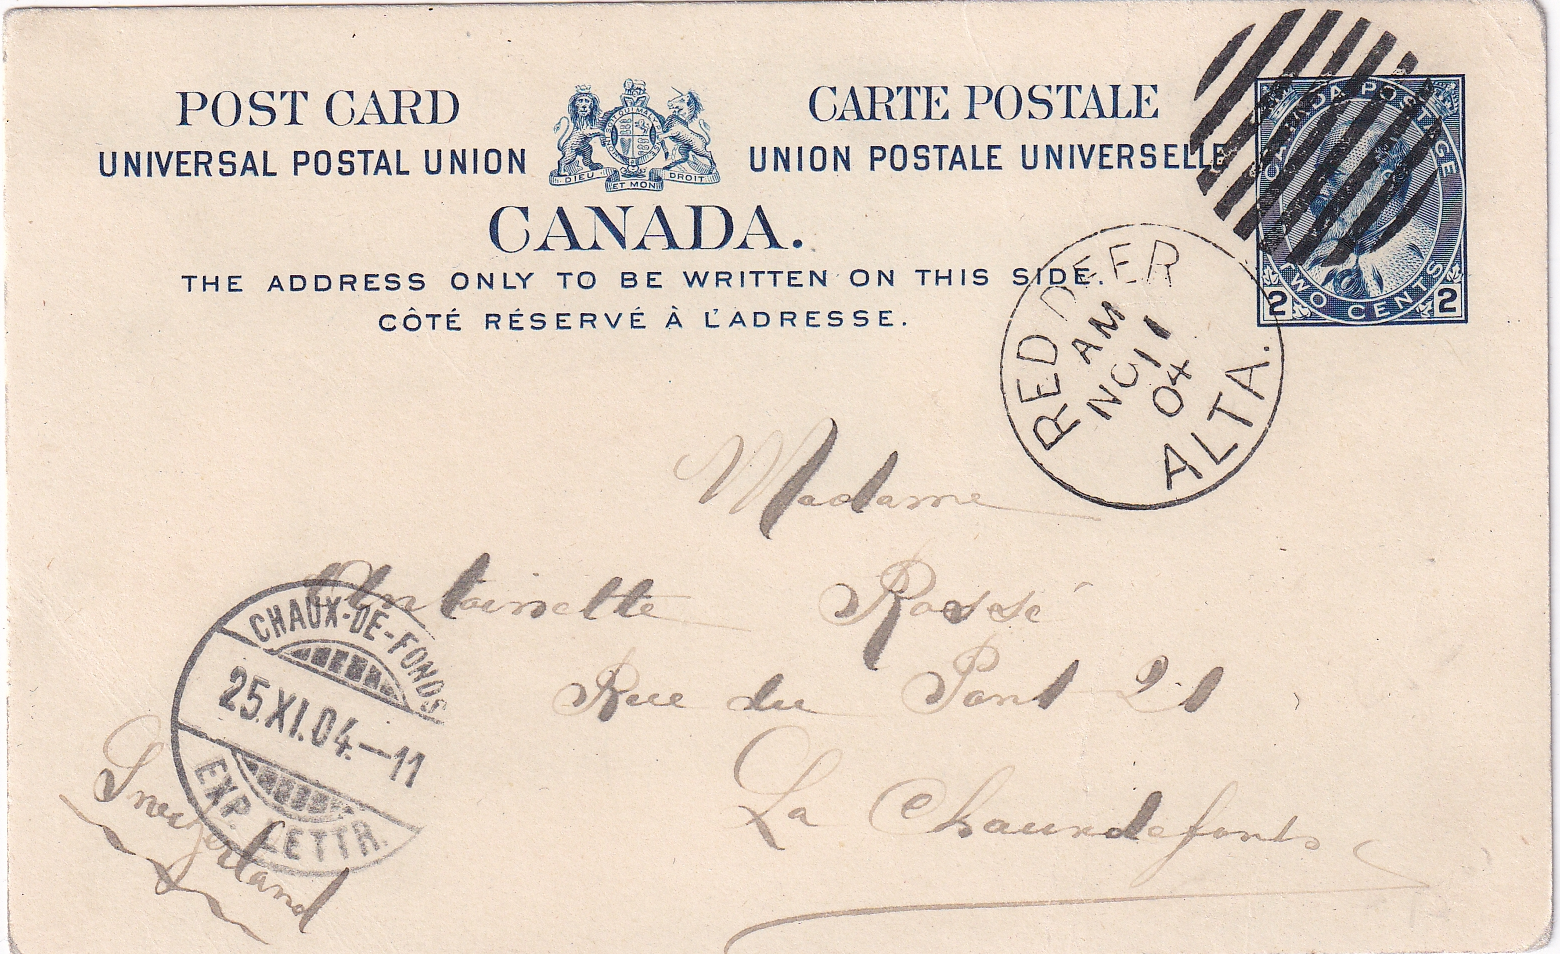 POST CARD
UNIVERSAL POSTAL UNION
CARTE POSTALE
UNION POSTALE UNIVERSELLE
DIEU ET MON DROIT
CANADA.
THE ADDRESS ONLY TO BE WRITTEN ON THIS SIDE.
CÔTÉ RÉSERVÉ À L'ADRESSE.
CANADA POSTAGE
TWO CENTS
2 2
RED DEER
AM
NO 11
04
ALTA.
Madame
Antoinette Rossé
Rue du Pont 21
La Chauxdefonds
CHAUX-DE-FONDS
25.XI.04.–11
EXP. LETTR.